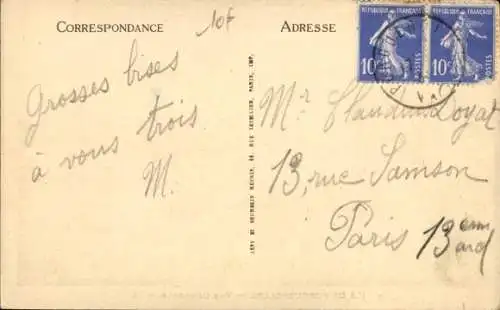 CORRESPONDANCE
10f
ADRESSE
RÉPUBLIQUE FRANÇAISE
10c
POSTES
10c
POSTES
Grosses bises
à vous trois
M.
Mr Claudius Doyat
13, rue Samson
Paris 13em
ard